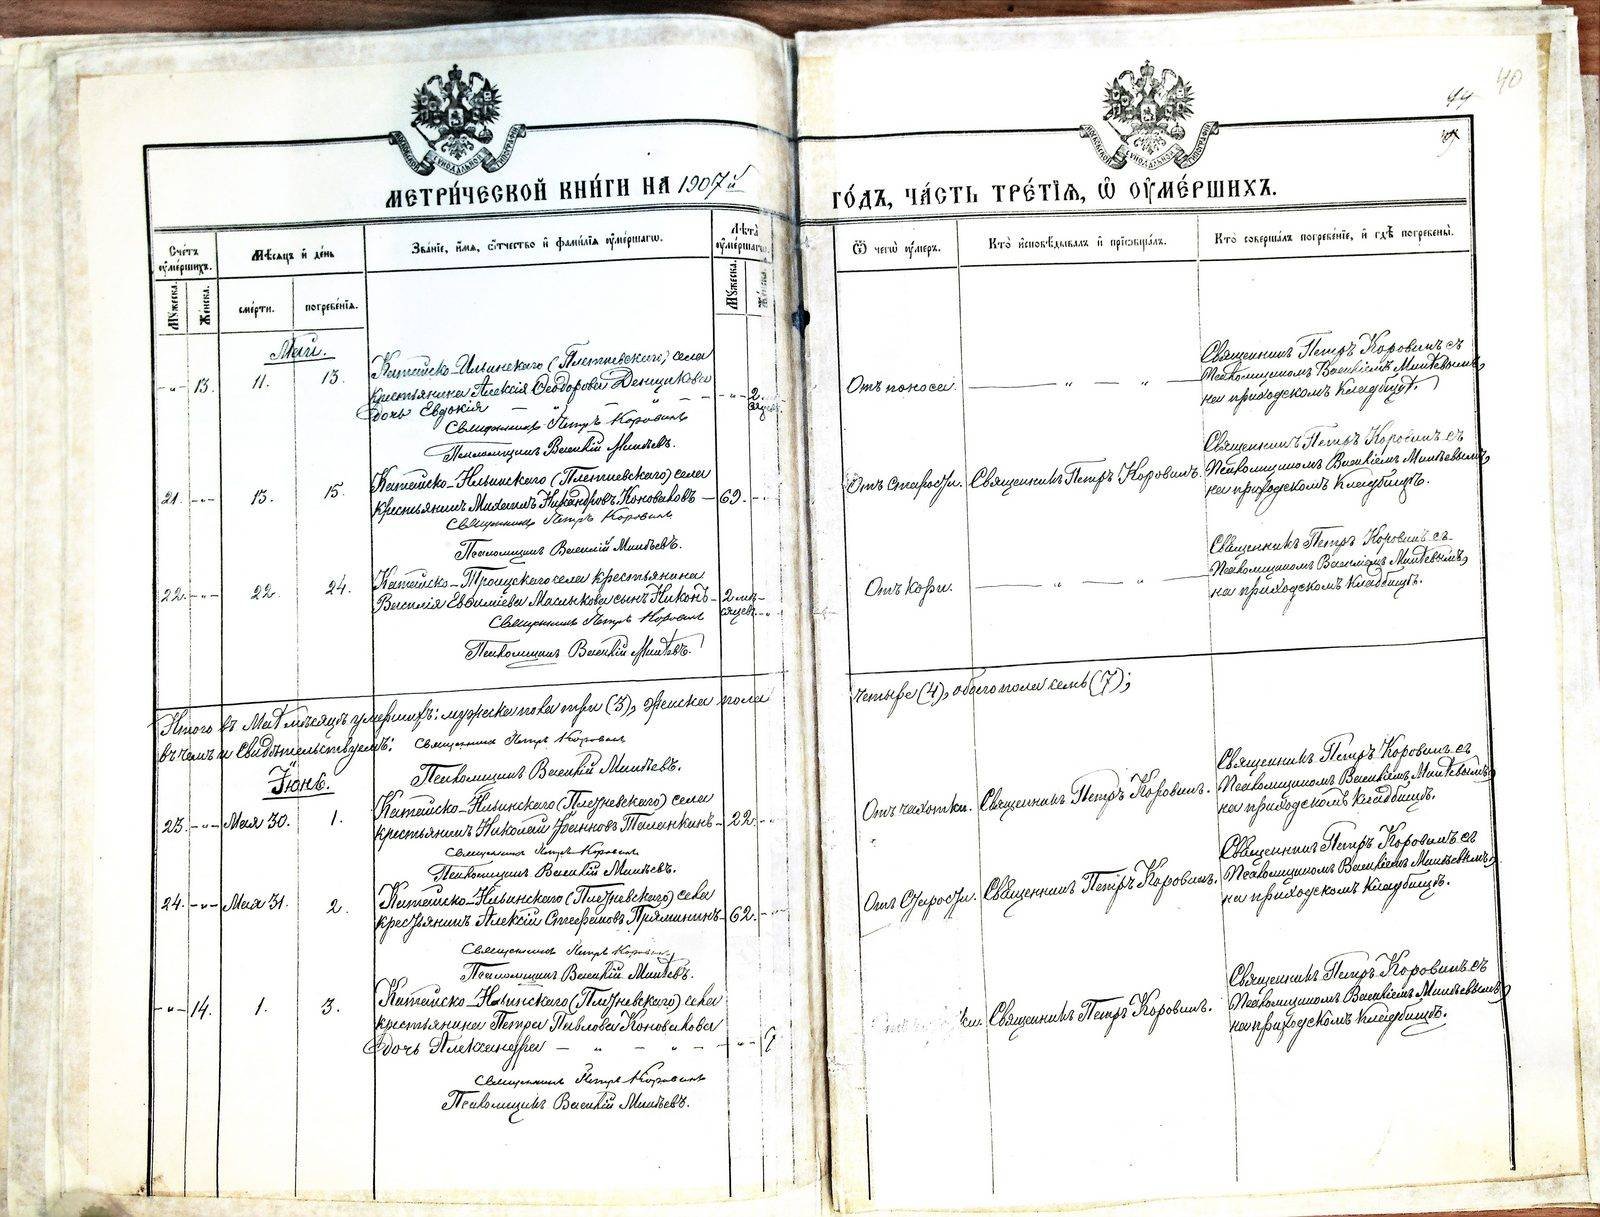 40
44
МОСКОВСКОЙ СѴНОДАЛЬНОЙ ТИПОГРАФІИ
МОСКОВСКОЙ СѴНОДАЛЬНОЙ ТИПОГРАФІИ
МЕТРИ́ЧЕСКОЙ КНИ́ГИ НА 1907й
ГО́ДЪ, ЧА́СТЬ ТРЕ́ТІѦ, Ѽ ОУ҆МЕ́РШИХЪ.
Сче́тъ оу҆ме́ршихъ.
Мѣсѧцъ и҆ де́нь
Зва́нїе, и҆́мѧ, ѻ҆́тчество и҆ фами́лїѧ оу҆ме́ршагѡ.
Лѣ́та оу҆ме́ршагѡ.
Ѿ чегѡ̀ оу҆́меръ.
Кто̀ и҆сповѣ́дывалъ и҆ прїѡбща́лъ.
Кто̀ соверша́лъ погребе́нїе, и҆ гдѣ̀ погребены̀.
Мꙋ́жеска.
Же́нска.
сме́рти.
погребе́нїѧ.
Мꙋ́жеска.
Май.
-"- 13. 11. 13.
Катайско-Ильинского (Плетневского) села
крестьянина Алексія Ѳеодорова Денщикова
дочь Евдокія — " — " — -"- 2.
Священникъ Петръ Коровинъ
Псаломщикъ Василій Минѣевъ.
Отъ поноса. — " — " —
Священникъ Петръ Коровинъ съ
Псаломщикомъ Василіемъ Минѣевымъ,
на приходскомъ кладбищѣ.
21. -"- 13. 15.
Катайско-Ильинского (Плетневского) села
крестьянинъ Михаилъ Никандровъ Коноваловъ — 69.
Священникъ Петръ Коровинъ
Псаломщикъ Василій Минѣевъ.
Отъ старости. Священникъ Петръ Коровинъ.
Священникъ Петръ Коровинъ съ
Псаломщикомъ Василіемъ Минѣевымъ,
на приходскомъ кладбищѣ.
22. -"- 22. 24.
Катайско-Троицкаго села крестьянина
Василія Евѳиміева Маслыкова сынъ Никонъ — 2 мѣ-
сяцевъ.
Священникъ Петръ Коровинъ
Псаломщикъ Василій Минѣевъ.
Отъ кори. — " — " —
Священникъ Петръ Коровинъ съ
Псаломщикомъ Василіемъ Минѣевымъ,
на приходскомъ кладбищѣ.
Итого въ Маѣ мѣсяцѣ умершихъ: мужеска пола три (3), женска пола
четыре (4), обоего пола семь (7);
въ чемъ и свидѣтельствуемъ: Священникъ Петръ Коровинъ
Псаломщикъ Василій Минѣевъ.
Іюнь.
23. -"- Мая 30. 1.
Катайско-Ильинского (Плетневского) села
крестьянинъ Николай Іоанновъ Таланкинъ — 22. -"
Священникъ Петръ Коровинъ
Псаломщикъ Василій Минѣевъ.
Отъ чахотки. Священникъ Петръ Коровинъ.
Священникъ Петръ Коровинъ съ
Псаломщикомъ Василіемъ Минѣевымъ,
на приходскомъ кладбищѣ.
24. -"- Мая 31. 2.
Катайско-Ильинского (Плетневского) села
крестьянинъ Алексій Стефановъ Пряминынъ — 62. -"
Священникъ Петръ Коровинъ
Псаломщикъ Василій Минѣевъ.
Отъ старости. Священникъ Петръ Коровинъ.
Священникъ Петръ Коровинъ съ
Псаломщикомъ Василіемъ Минѣевымъ,
на приходскомъ кладбищѣ.
-"- 14. 1. 3.
Катайско-Ильинского (Плетневского) села
крестьянина Петра Павлова Коновалова
дочь Александра — " — " — -"- 7
Священникъ Петръ Коровинъ
Псаломщикъ Василій Минѣевъ.
Священникъ Петръ Коровинъ.
Священникъ Петръ Коровинъ съ
Псаломщикомъ Василіемъ Минѣевымъ,
на приходскомъ кладбищѣ.